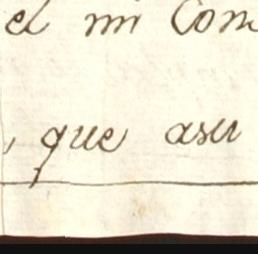 el mi Com
, que asu